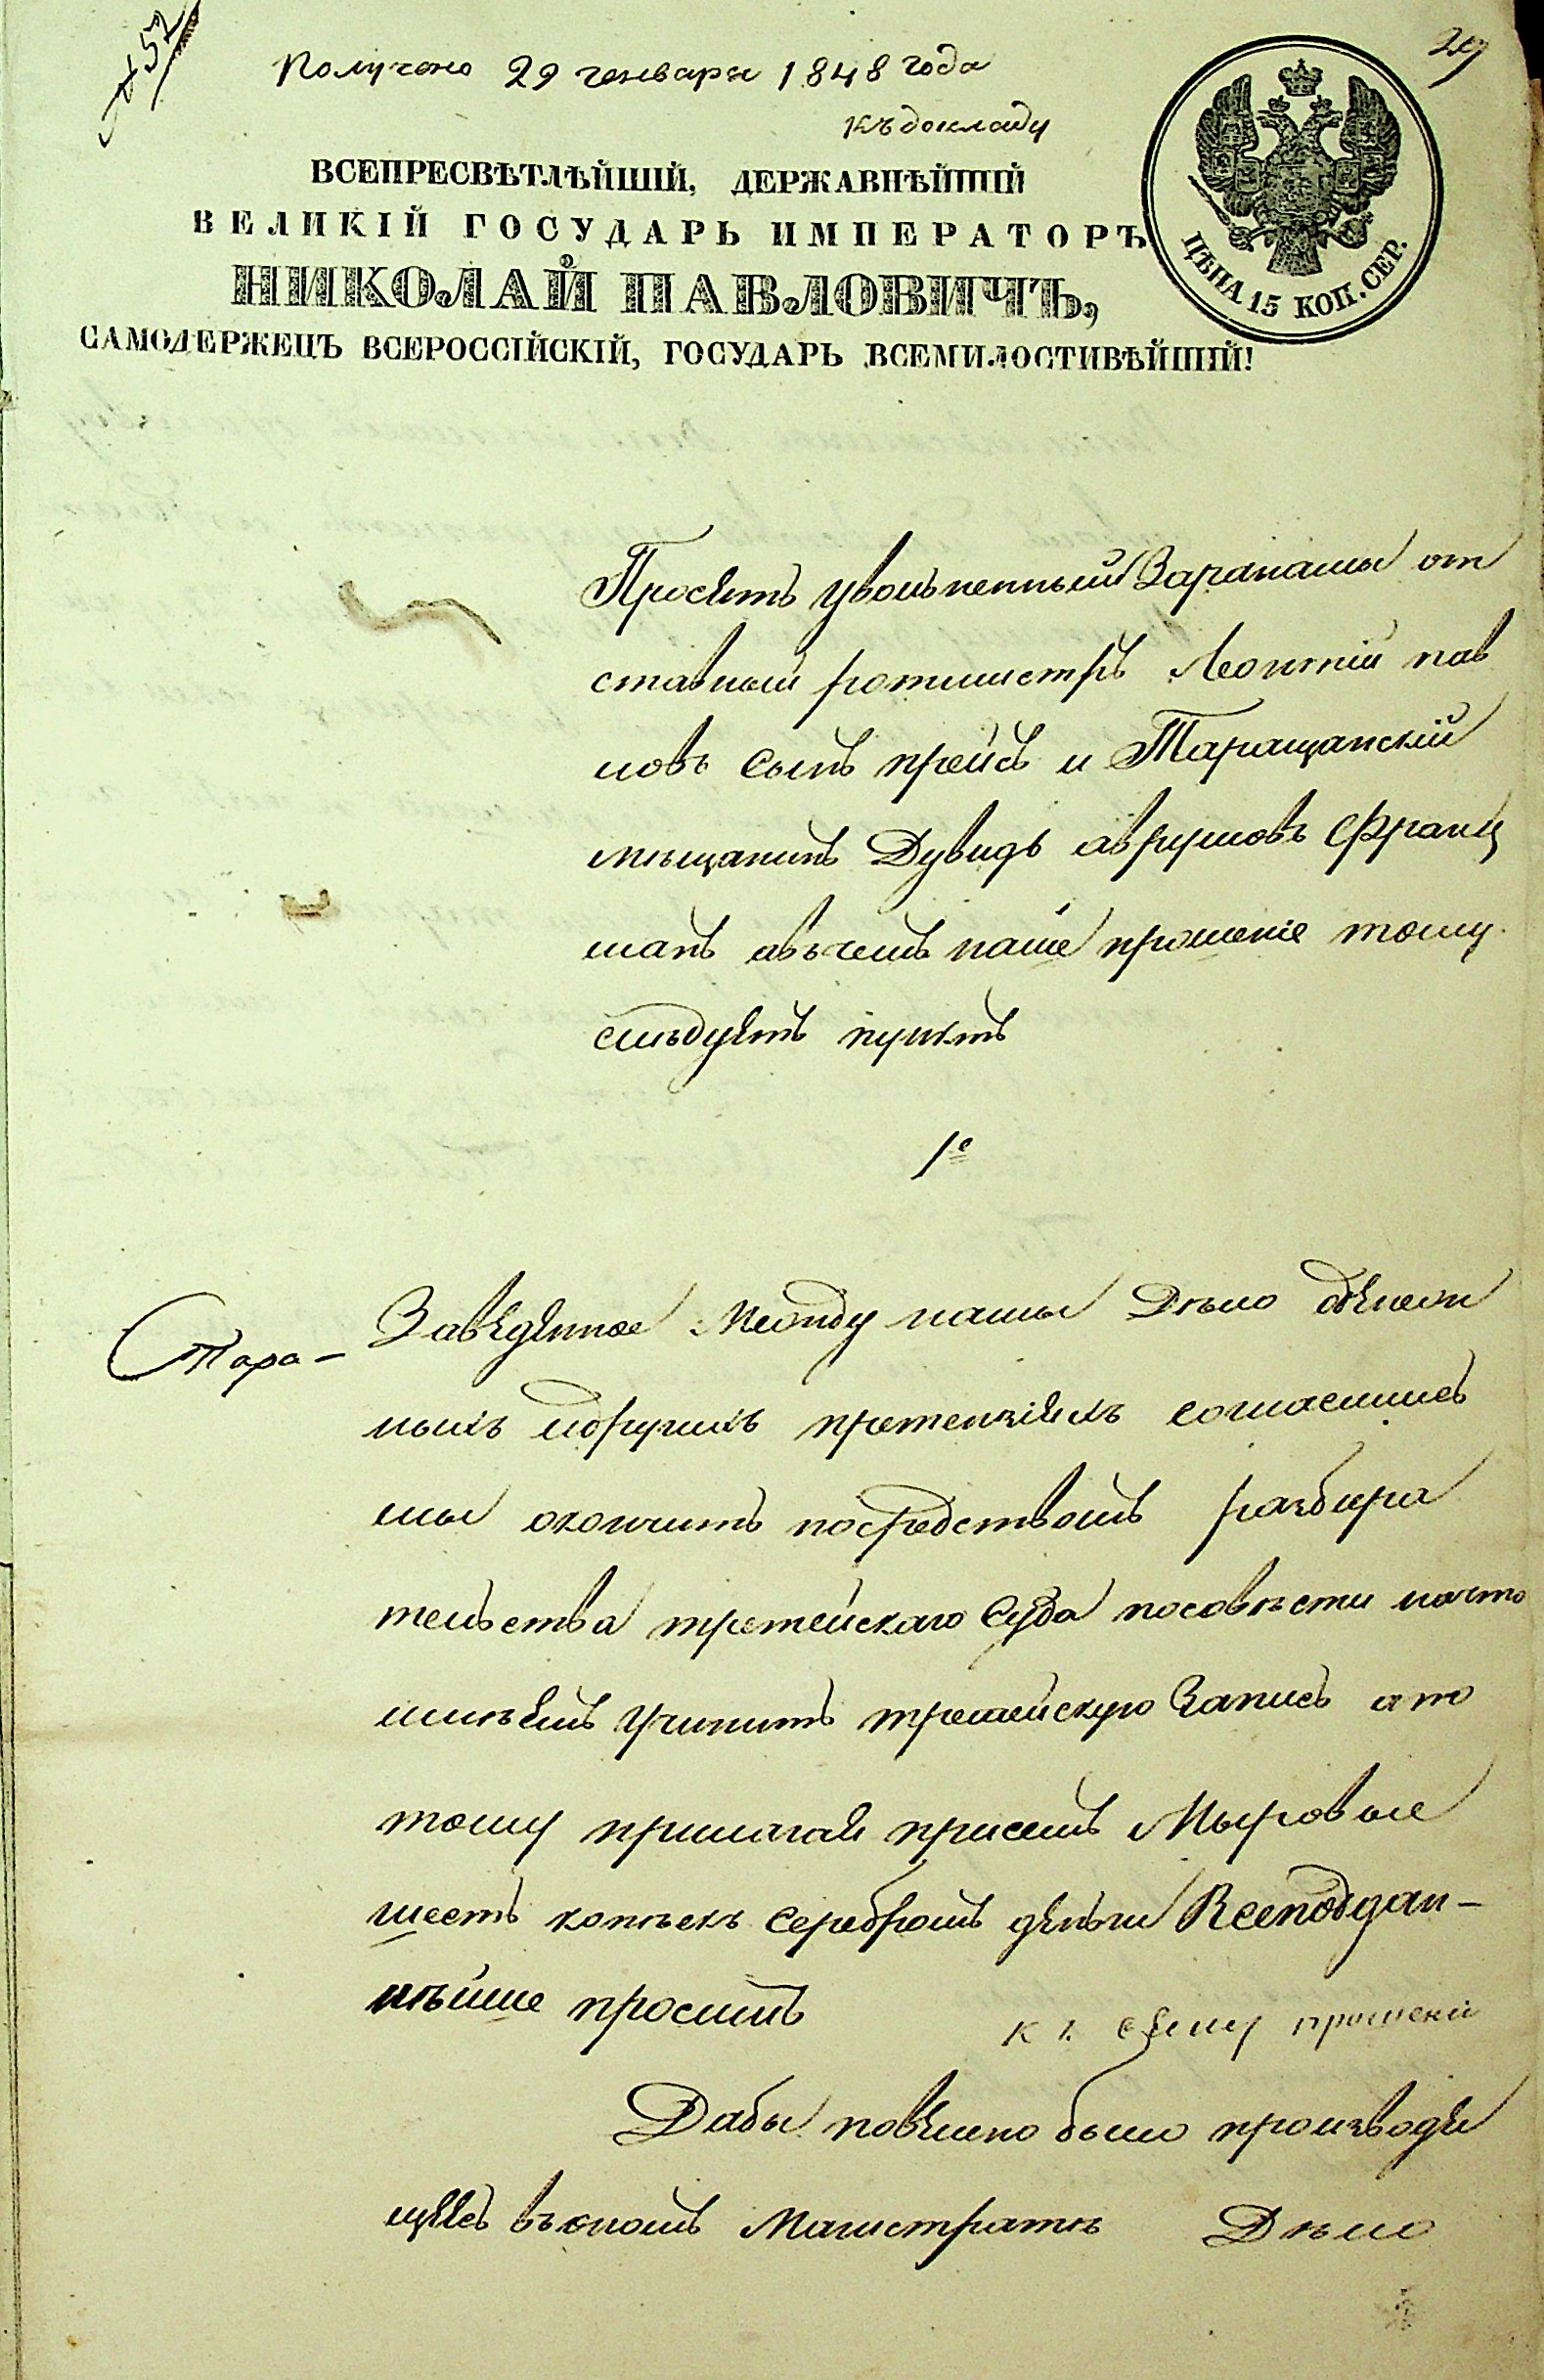 № 52
Получено 29 генваря 1848 года
29
къ докладу
ВСЕПРЕСВѢТЛѢЙШІЙ, ДЕРЖАВНѢЙШІЙ
ВЕЛИКІЙ ГОСУДАРЬ ИМПЕРАТОРЪ
НИКОЛАЙ ПАВЛОВИЧЪ,
САМОДЕРЖЕЦЪ ВСЕРОССІЙСКІЙ, ГОСУДАРЬ ВСЕМИЛОСТИВѢЙШІЙ!
ЦѢНА 15 КОП. СЕР.
Просятъ уволъненный Заранамы от
ставный ротмистръ Леонтій пав
ловъ сынъ прейсъ и Таращанскій
мѣщанинъ Дувидъ аврумовъ Франц
манъ авъчемъ наше прошеніе тому
слѣдуятъ пунктъ
1е
Заведенное Между намы Дѣло
ныхъ идругихъ претензіяхъ согласилисъ
мы окончитъ посредствомъ разбира
телъства третейскаго Суда посовѣсти начто
имѣемъ учинитъ третейскую Записъ ато
тому прилагая присемъ Мыровые
шестъ копѣекъ серебромъ денъги Всеподдан-
нѣйше просимъ
къ сему прошенію
Тара-
Дабы повелено было производя
щеесъ въ ономъ Магистратѣ Дѣло